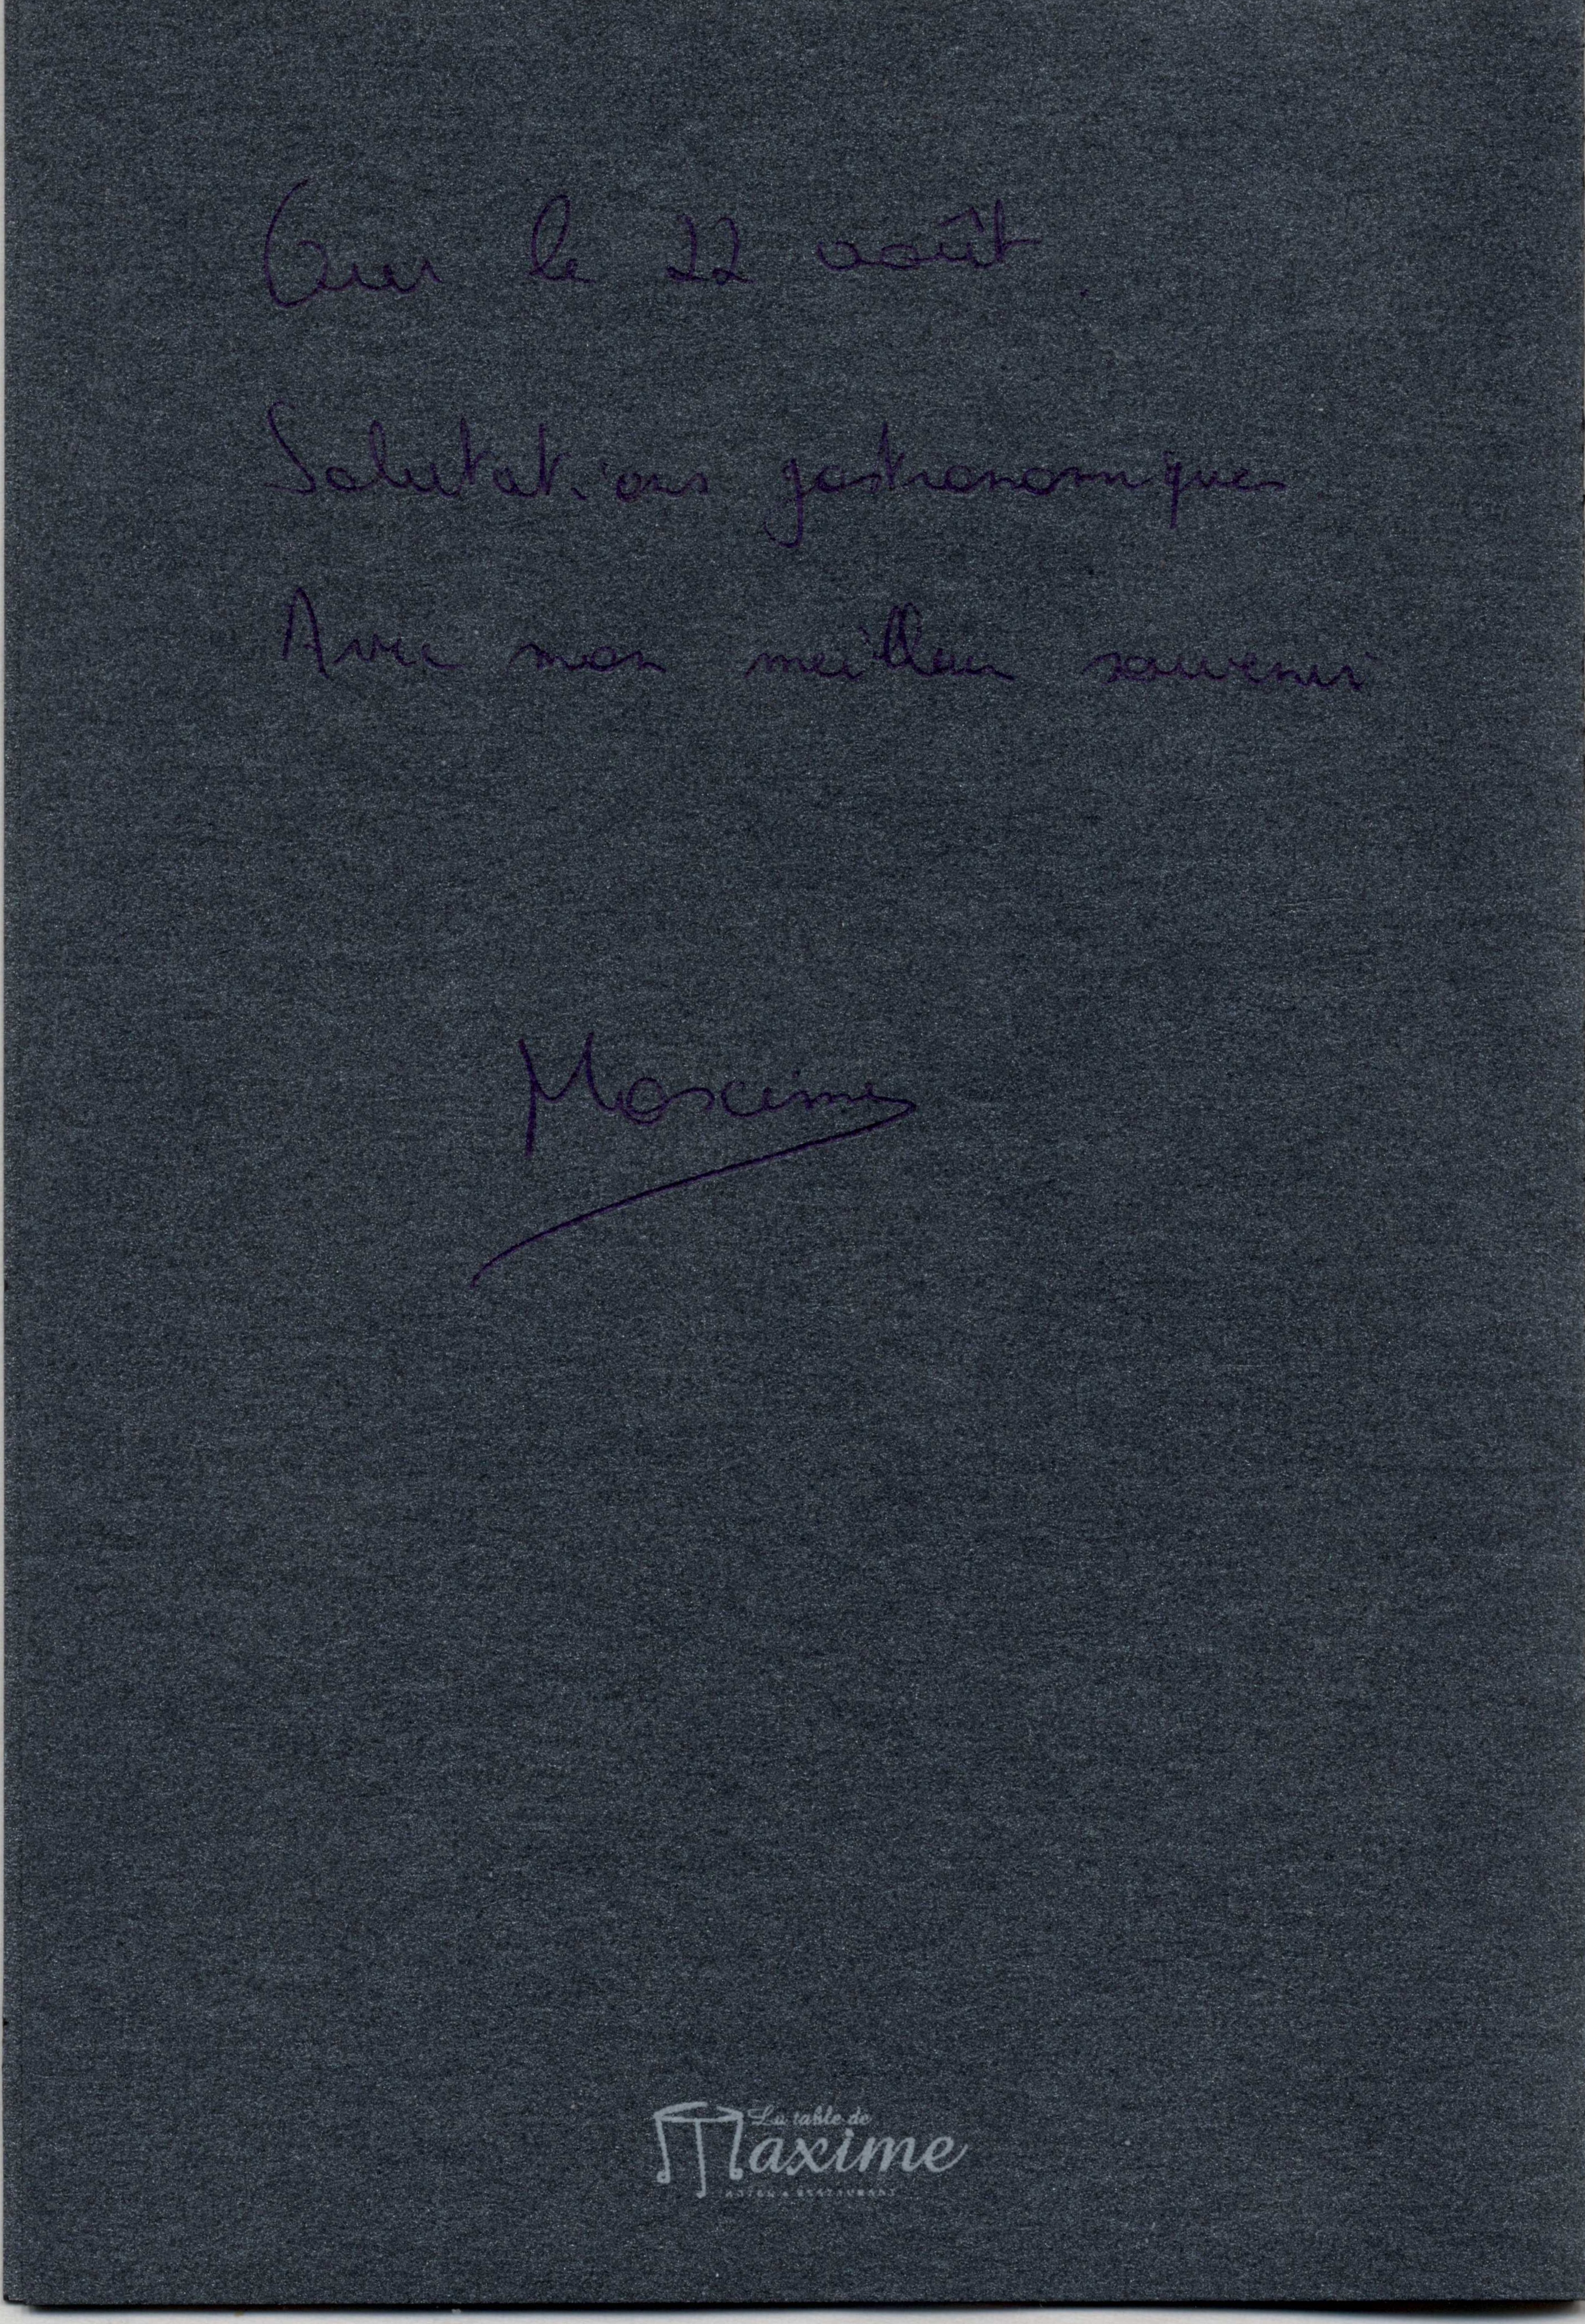 Our le 22 août.
Salutations gastronomiques
Avec mon meilleur souvenir
Maxime
La table de
Maxime
HOTEL & RESTAURANT